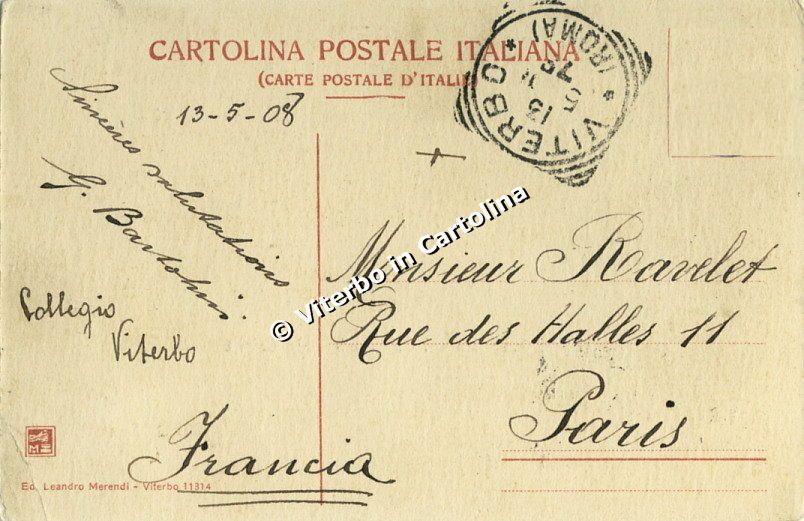 CARTOLINA POSTALE ITALIANA
(CARTE POSTALE D'ITALI
VITERBO
*(ROMA)*
13
5
13-5-08
Sincères salutations
G. Bartolini
Collegio
Viterbo
Monsieur Ravelet
Rue des Halles 11
Paris
Francia
© Viterbo in Cartolina
Ed. Leandro Merendi - Viterbo 11314